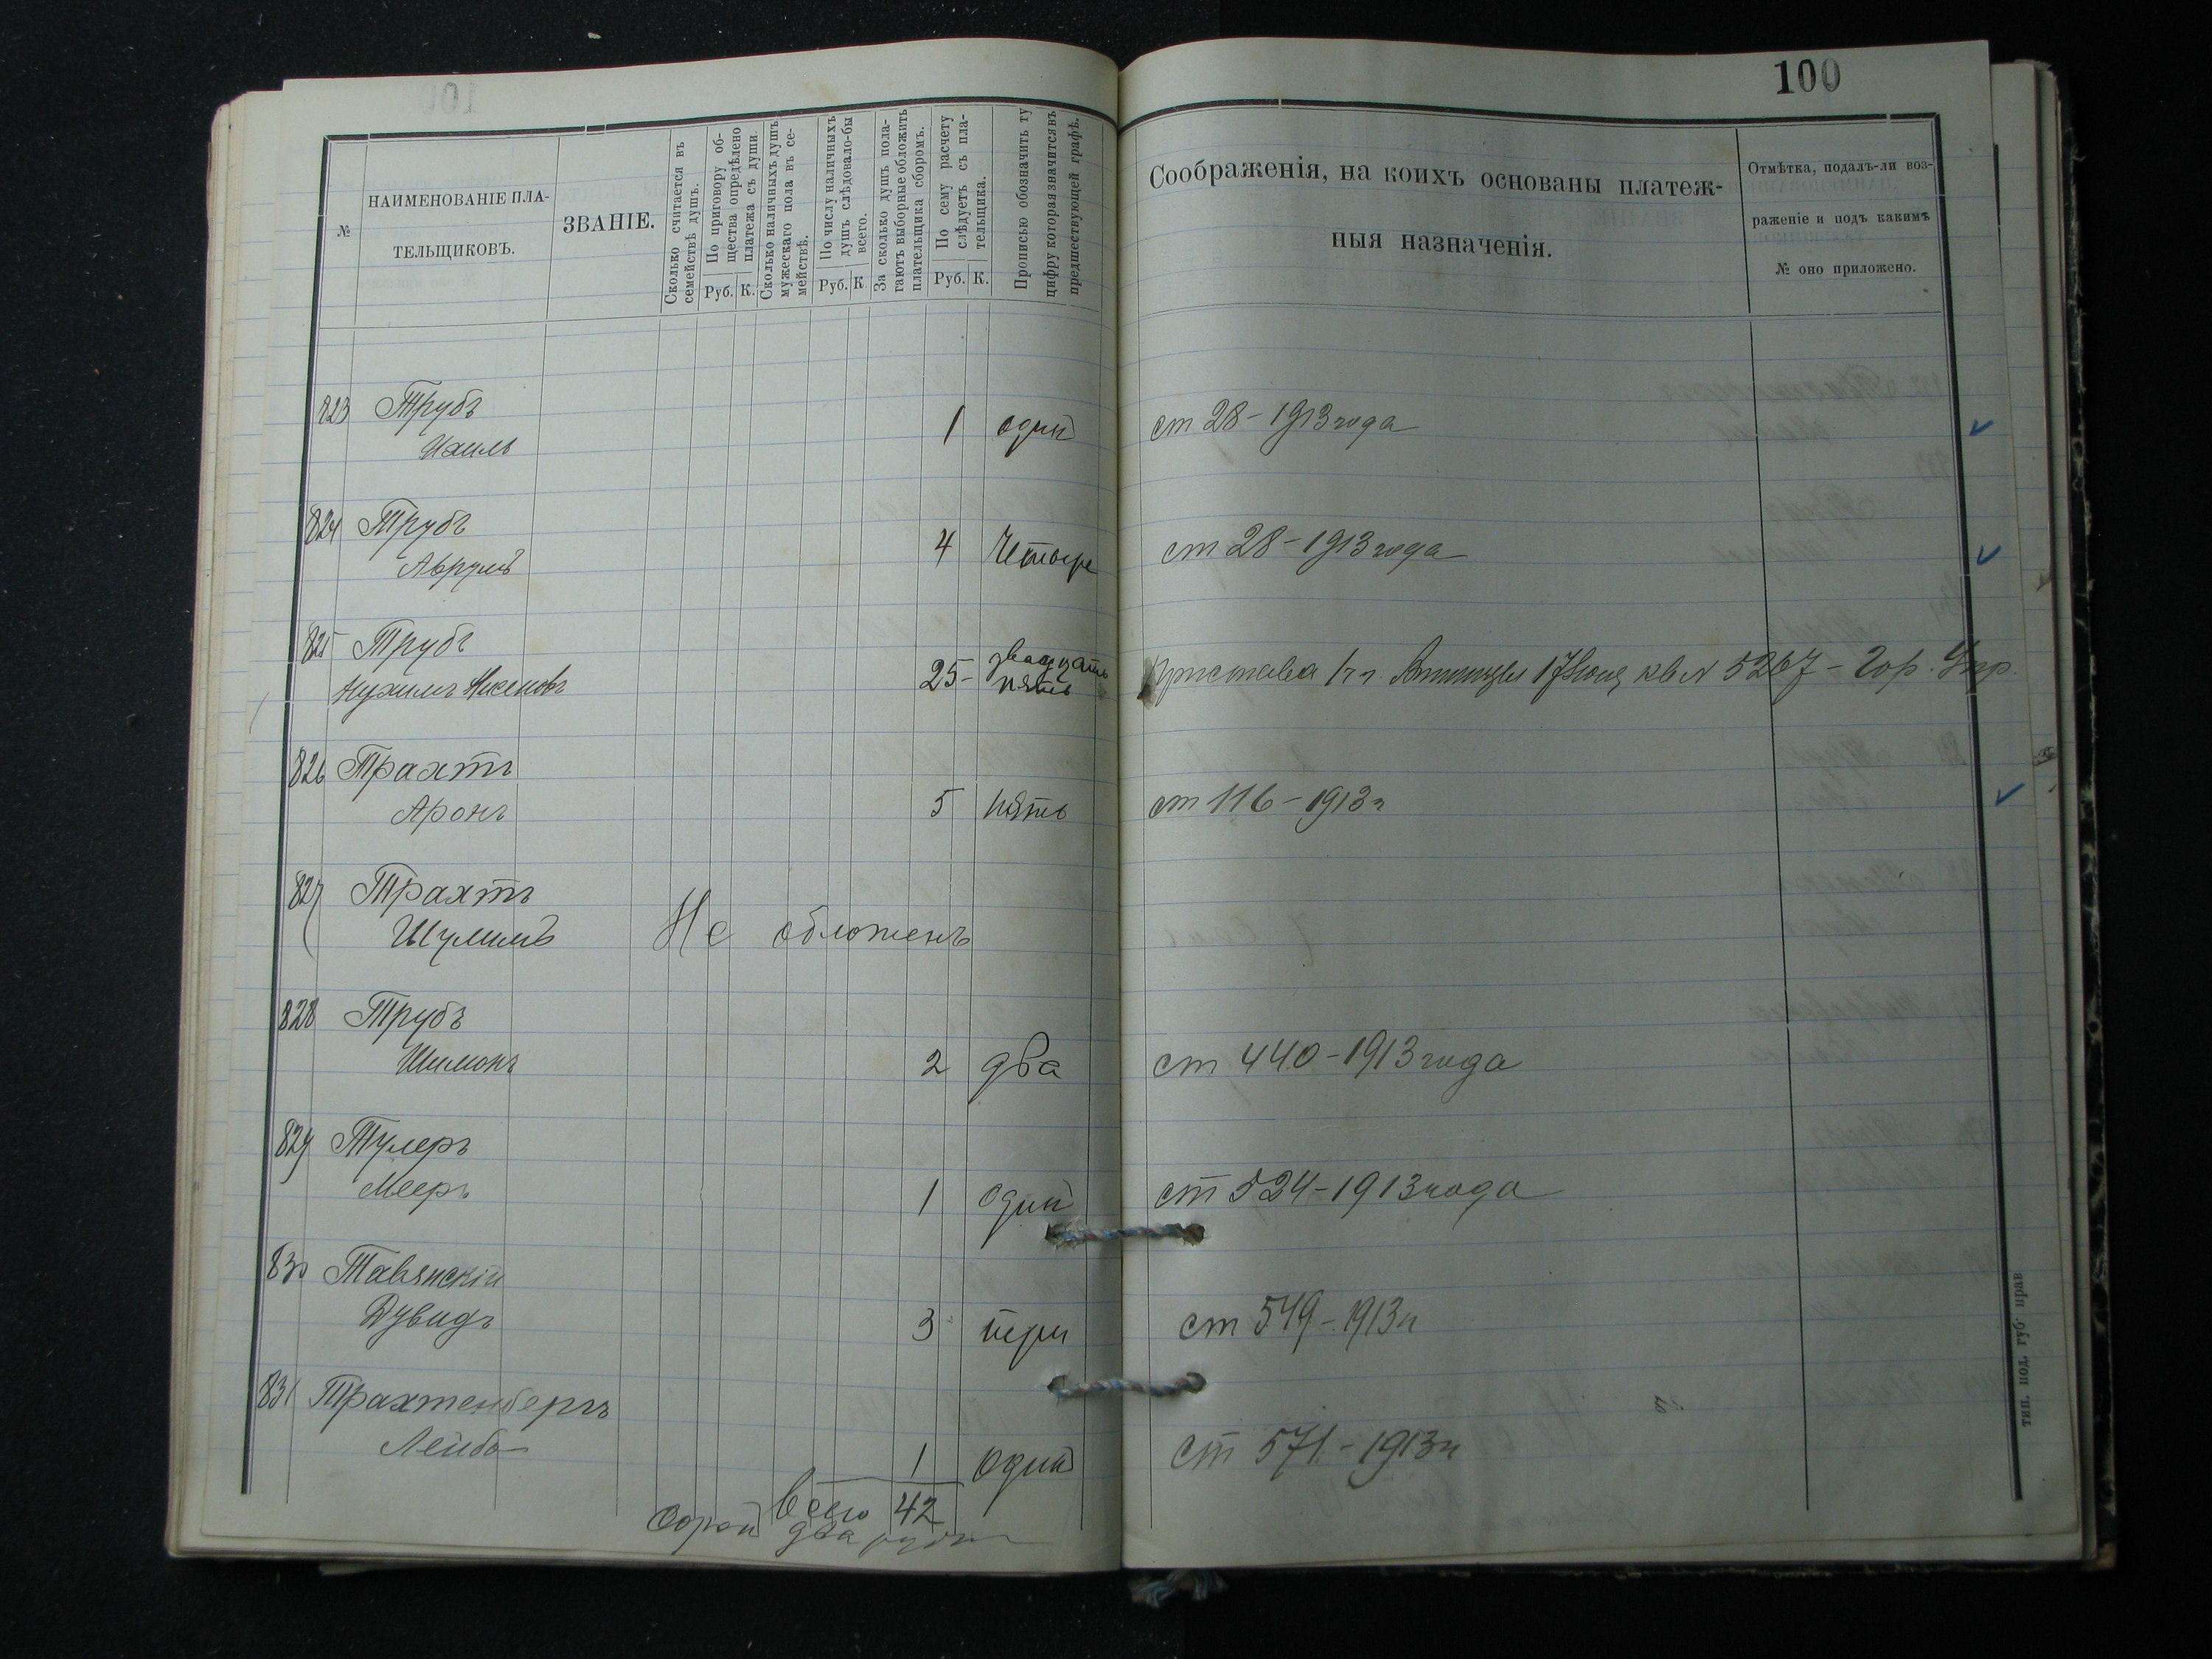 100
№
НАИМЕНОВАНІЕ ПЛА-
ТЕЛЬЩИКОВЪ.
ЗВАНІЕ.
Сколько считается въ
семействѣ душъ.
По приговору об-
щества опредѣлено
платежа съ души.
Руб. К.
Сколько наличныхъ душъ
мужескаго пола въ се-
мействѣ.
По числу наличныхъ
душъ слѣдовало-бы
всего.
Руб. К.
За сколько душъ пола-
гаютъ выборные обложить
плательщика сборомъ.
По сему расчету
слѣдуетъ съ пла-
тельщика.
Руб. К.
Прописью обозначить ту
цифру которая значится въ
предшествующей графѣ.
Соображенія, на коихъ основаны платеж-
ныя назначенія.
Отмѣтка, подалъ-ли воз-
раженіе и подъ какимъ
№ оно приложено.
823 Трубъ
Хаимъ 1 один ст 28-1913 года
824 Трубъ
Аврумъ 4 Четыре ст 28-1913 года
825 Трубъ
Нухимъ Нисеновъ 25- двадцать
пять Пристава 1 ч г. Винницы 17 кв № 5267 - Гор. Упр.
826 Трахтъ
Аронъ 5 пять ст 116-1913 г
827 Трахтъ
Шулимъ Не обложенъ
828 Трубъ
Шимонъ 2 два ст 440-1913 года
829 Тулеръ
Мееръ 1 один ст 524-1913 года
830 Тавянскій
Дувидъ 3 три ст 549-1913 г
831 Трахтенбергъ
Лейба 1 один ст 571-1913 г
Всего 42
Сорок два рубл
тип. под. губ. прав